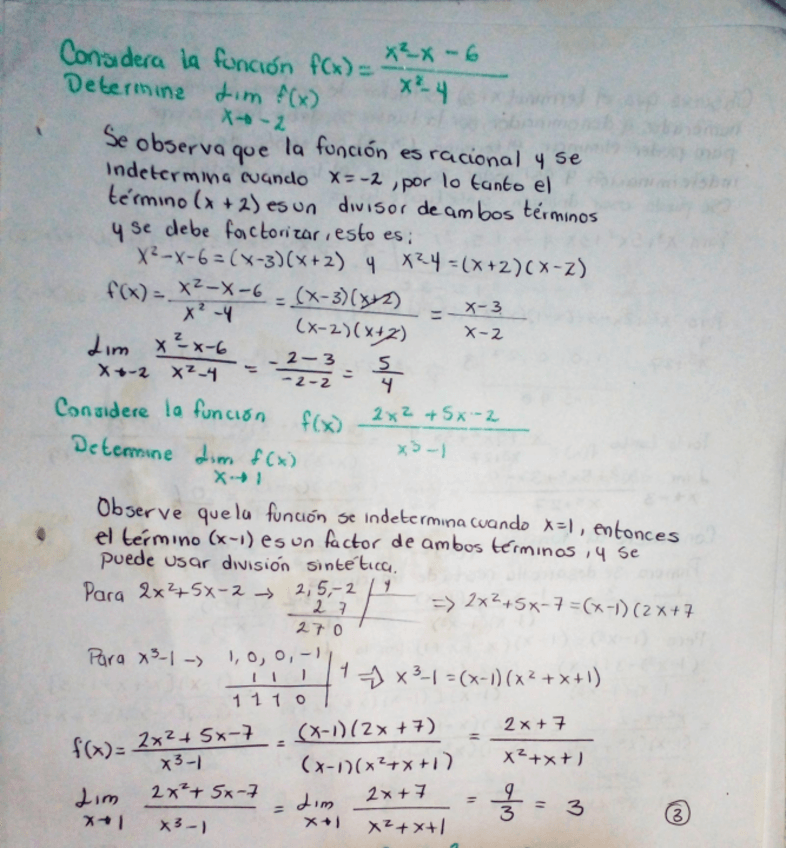 Considera la función f(x) = x²-x-6 / x²-4
Determine Lim f(x)
x→-2
Se observa que la función es racional y se
indetermina cuando x=-2, por lo tanto el
término (x+2) es un divisor de ambos términos
y se debe factorizar, esto es:
x²-x-6=(x-3)(x+2) y x²-4=(x+2)(x-2)
f(x)= x²-x-6 / x²-4 = (x-3)(x+2) / (x-2)(x+2) = x-3 / x-2
Lim x→-2 x²-x-6 / x²-4 = -2-3 / -2-2 = 5/4
Considere la función f(x) 2x²+5x-2 / x³-1
Determine Lim f(x)
x→1
Observe que la función se indetermina cuando x=1, entonces
el término (x-1) es un factor de ambos términos, y se
puede usar división sintética.
Para 2x²+5x-2 → 2, 5, -2 | 1 ⇒ 2x²+5x-7=(x-1)(2x+7
2 7
2 7 0
Para x³-1 → 1, 0, 0, -1 | 1 ⇒ x³-1=(x-1)(x²+x+1)
1 1 1
1 1 1 0
f(x)= 2x²+5x-7 / x³-1 = (x-1)(2x+7) / (x-1)(x²+x+1) = 2x+7 / x²+x+1
Lim x→1 2x²+5x-7 / x³-1 = Lim x→1 2x+7 / x²+x+1 = 9/3 = 3
③